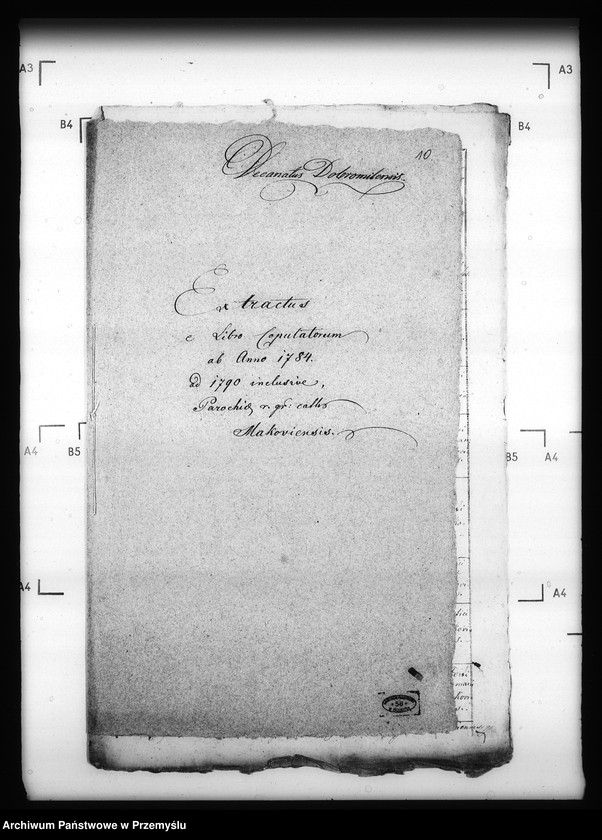 A3
A3
B4
B4
10
Decanatus Dobromilensis.
Extractus
e Libro Copulatorum
ab Anno 1784.
ad 1790 inclusive,
Parochiæ r. gr: cath:
Makoviensis.
A4
B5
B5
A4
A4
A4
56
Archiwum Państwowe w Przemyślu